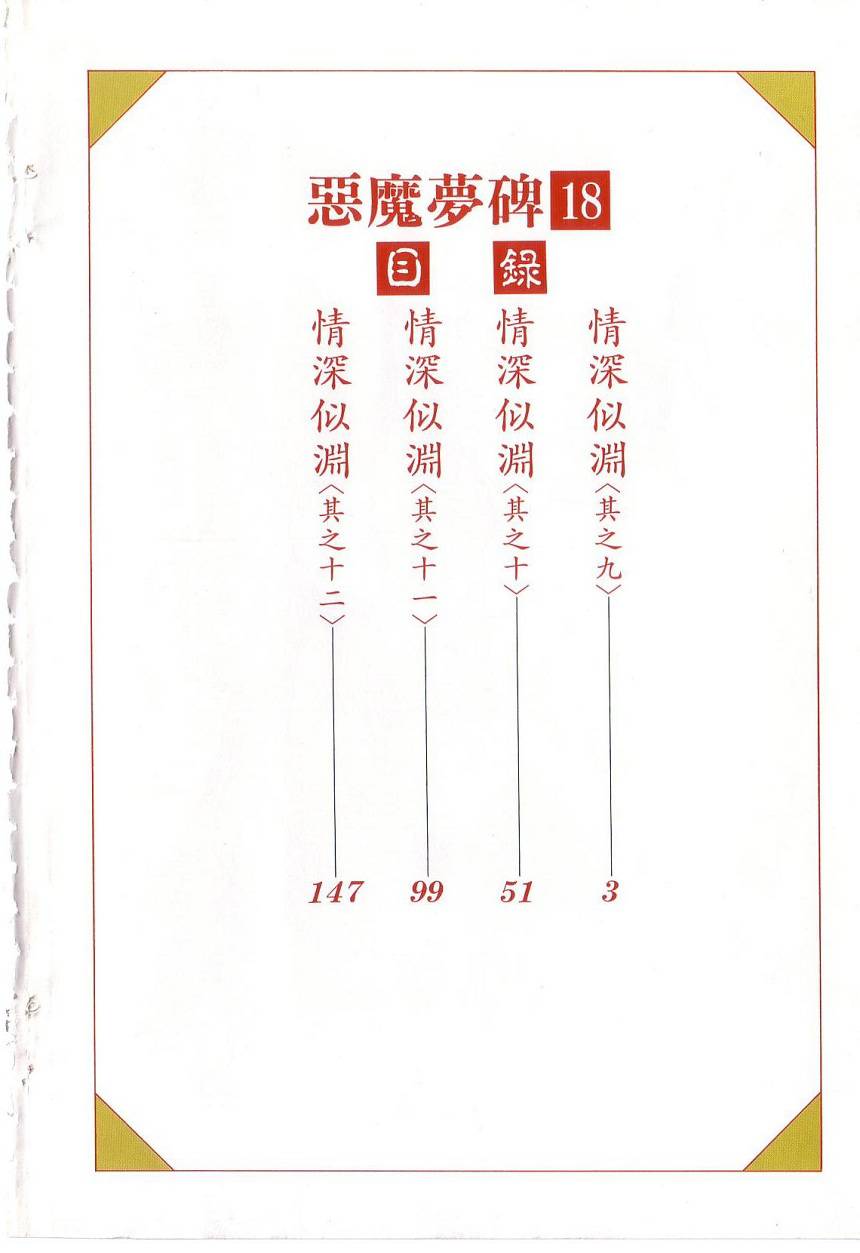 惡魔夢碑18
目錄
情深似淵〈其之九〉3
情深似淵〈其之十〉51
情深似淵〈其之十一〉99
情深似淵〈其之十二〉147